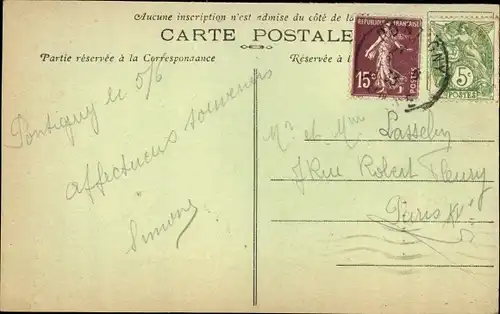 Aucune inscription n'est admise du côté de la
CARTE POSTALE
Partie réservée à la Correspondance
Réservée à l
RÉPUBLIQUE FRANÇAISE
15c
POSTES
5c
POSTES
Pontigny le 5/6
affectueux souvenirs
Simone
Mr et Mme
Rue Robert Fleury
Paris XVe